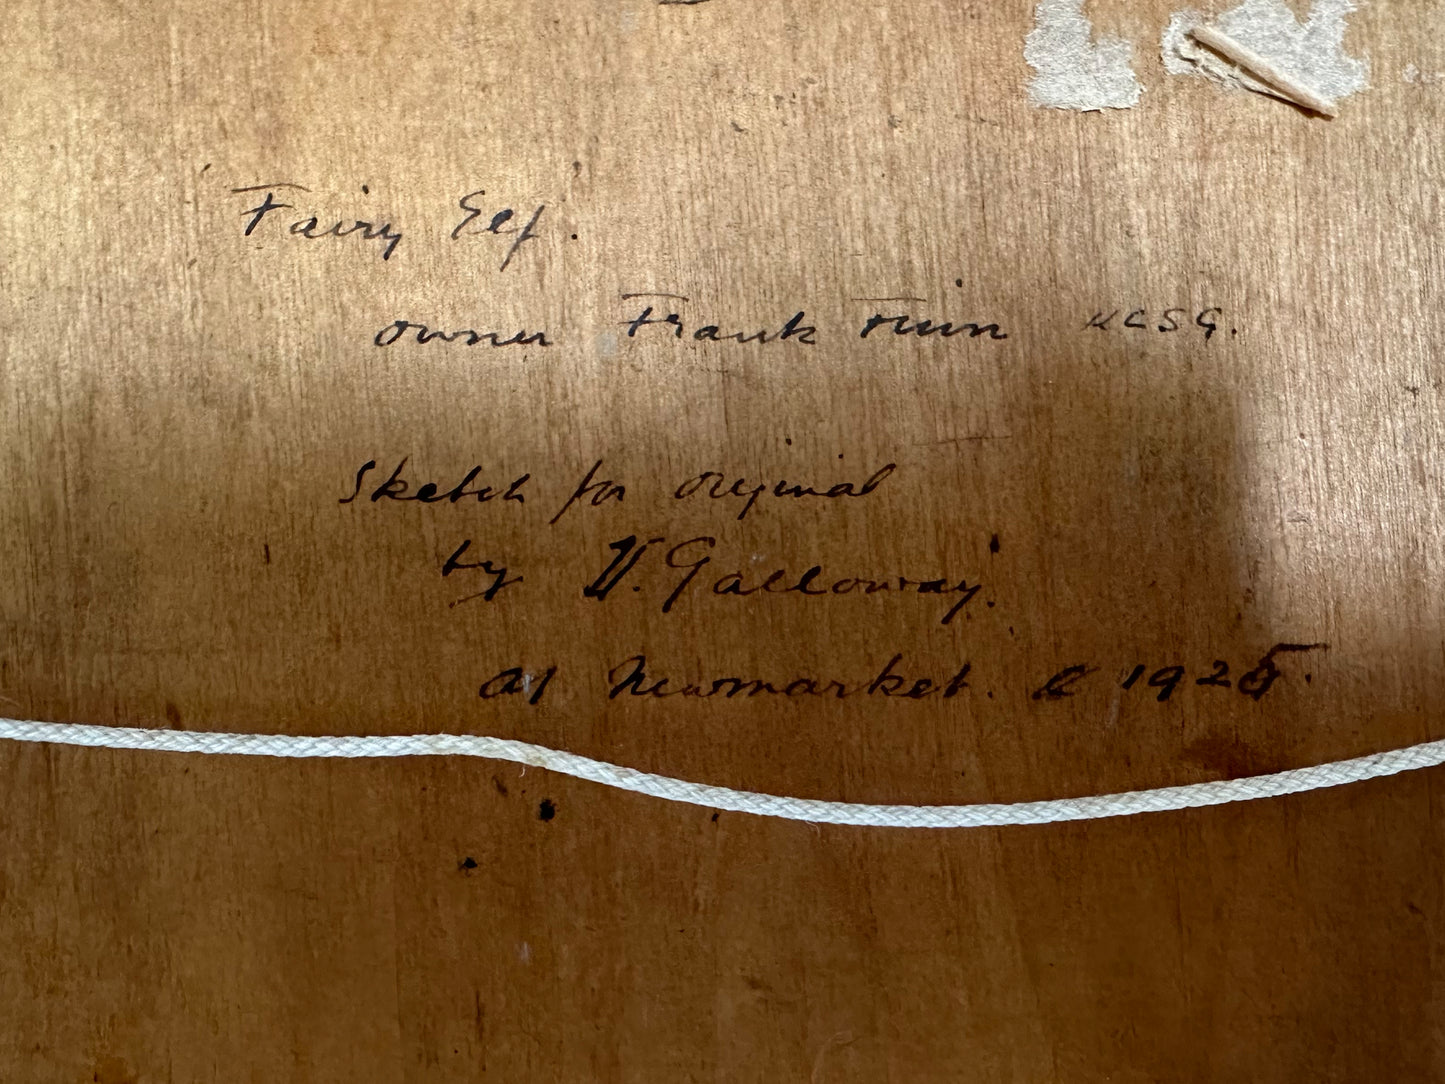 Fairy Elf.
owner Frank Finn KCSG.
Sketch for original
by V. Galloway.
At Newmarket. c 1925.